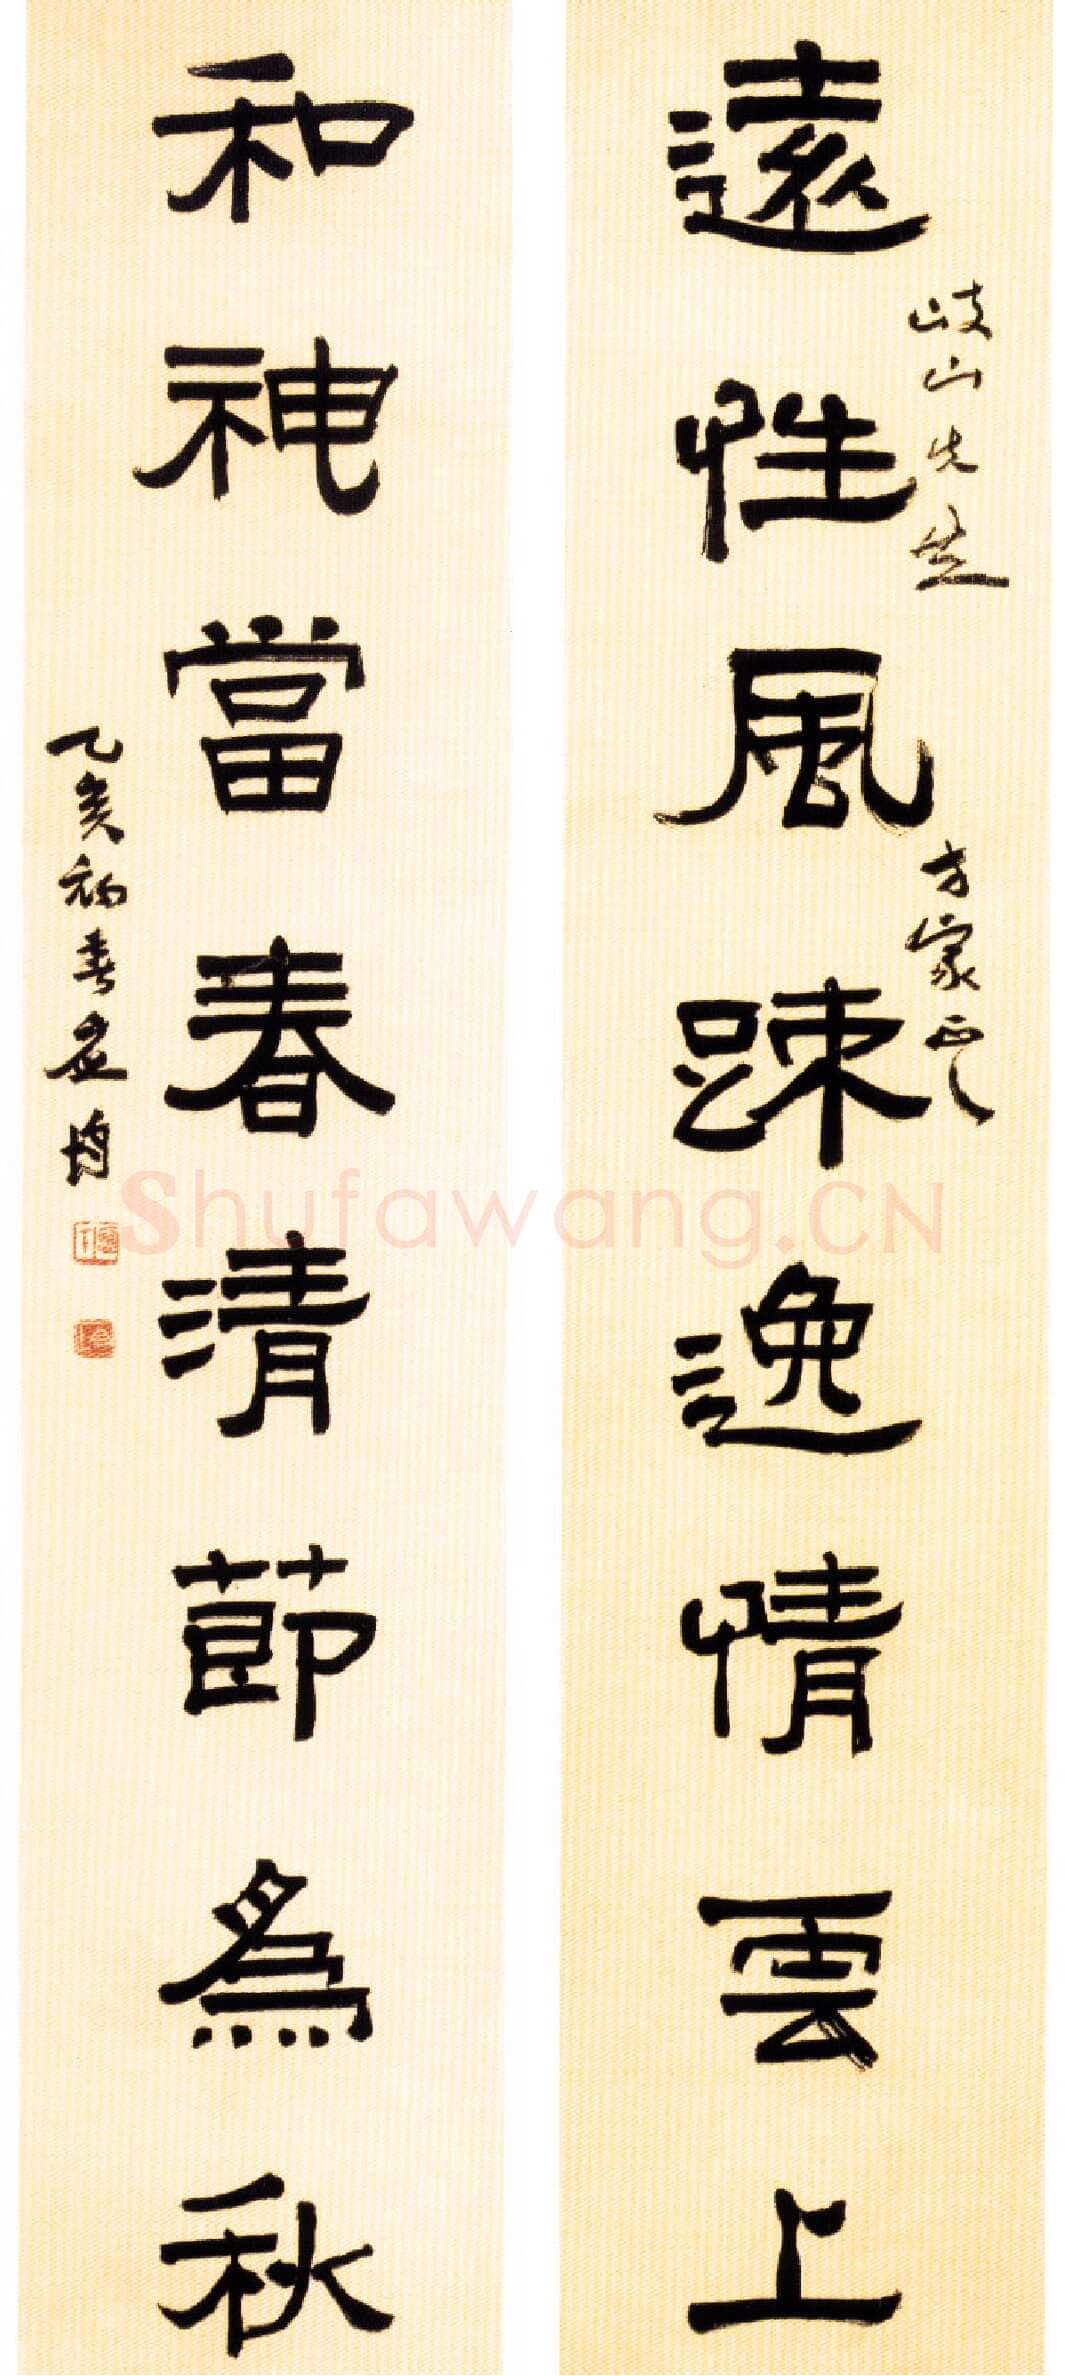 遠性風踈逸情雲上
歧山先生
方家正之
和神當春清節為秋
乙亥初春
Shufawang.CN